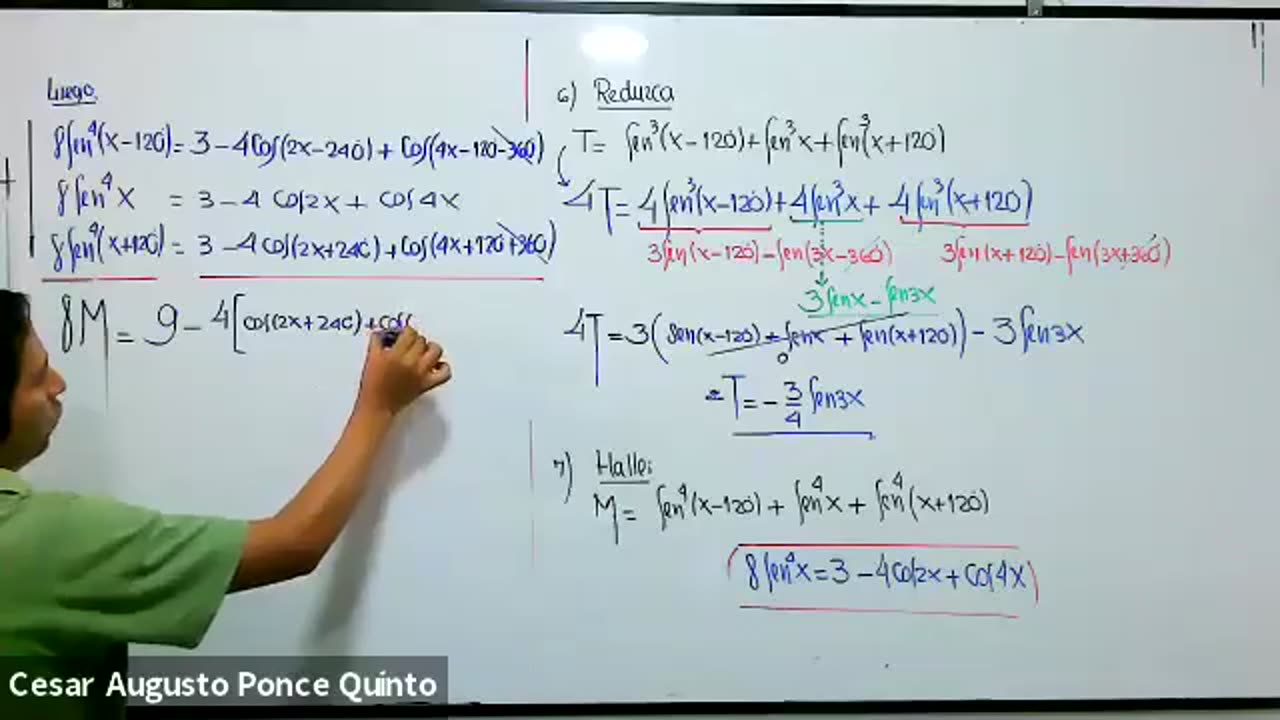 Luego
8Sen⁴(x-120°) = 3 - 4Cos(2x-240) + Cos(4x-120-360)
8Sen⁴x = 3 - 4 Cos2x + Cos4x
8Sen⁴(x+120) = 3 - 4Cos(2x+240) + Cos(4x+120+360)
8M = 9 - 4[Cos(2x+240) + Cos(
6) Reduzca
T = Sen³(x-120) + Sen³x + Sen³(x+120)
4T = 4Sen³(x-120) + 4Sen³x + 4Sen³(x+120)
3Sen(x-120) - Sen(3x-360) 3Sen(x+120) - Sen(3x+360)
3Senx - Sen3x
4T = 3(Sen(x-120) + Senx + Sen(x+120)) - 3Sen3x
0
T = -3/4 Sen3x
7) Halle:
M = Sen⁴(x-120) + Sen⁴x + Sen⁴(x+120)
8Sen⁴x = 3 - 4Cos2x + Cos4x
Cesar Augusto Ponce Quinto